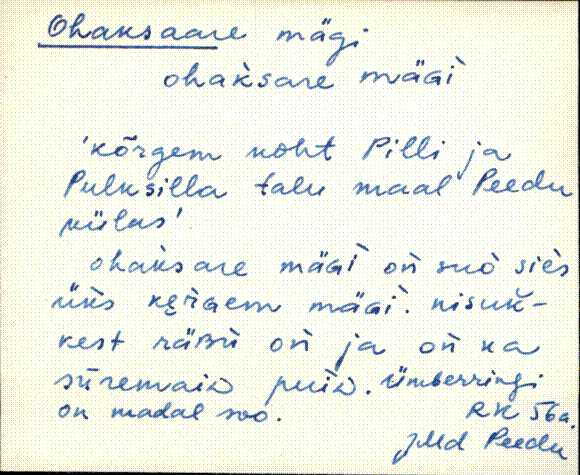 Ohaksaare mägi
ohaksare mägì
'kõrgem koht Pilli ja
Pulksilla talu maal Peedu
külas'
ohaksare mägì oǹ suò siès
üks kęŕgem mägì. nisuk̀-
kest räbù oǹ ja oǹ ka
sūremaid puid. ümberringi
on madal soo.
RK 56a.
JMd Peedu